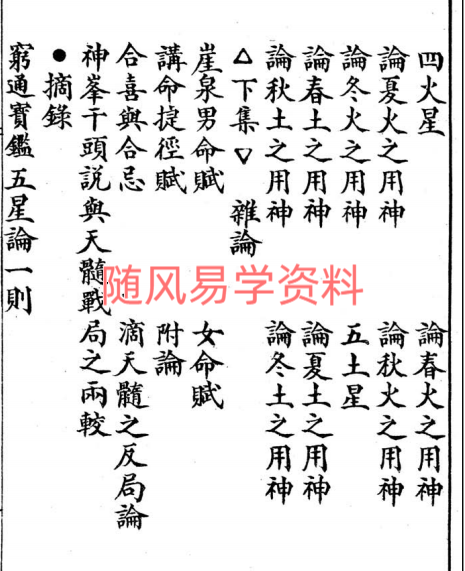 四火星　論春火之用神
論夏火之用神　論秋火之用神
論冬火之用神　五土星
論春土之用神　論夏土之用神
論秋土之用神　論冬土之用神
△下集▽　雜論
崖泉男命賦　女命賦
講命捷徑賦　附論
合喜與合忌　滴天髓之反局論
神峯干頭説與天髓戰局之兩較
●摘錄
窮通寶鑑五星論一則
随风易学资料